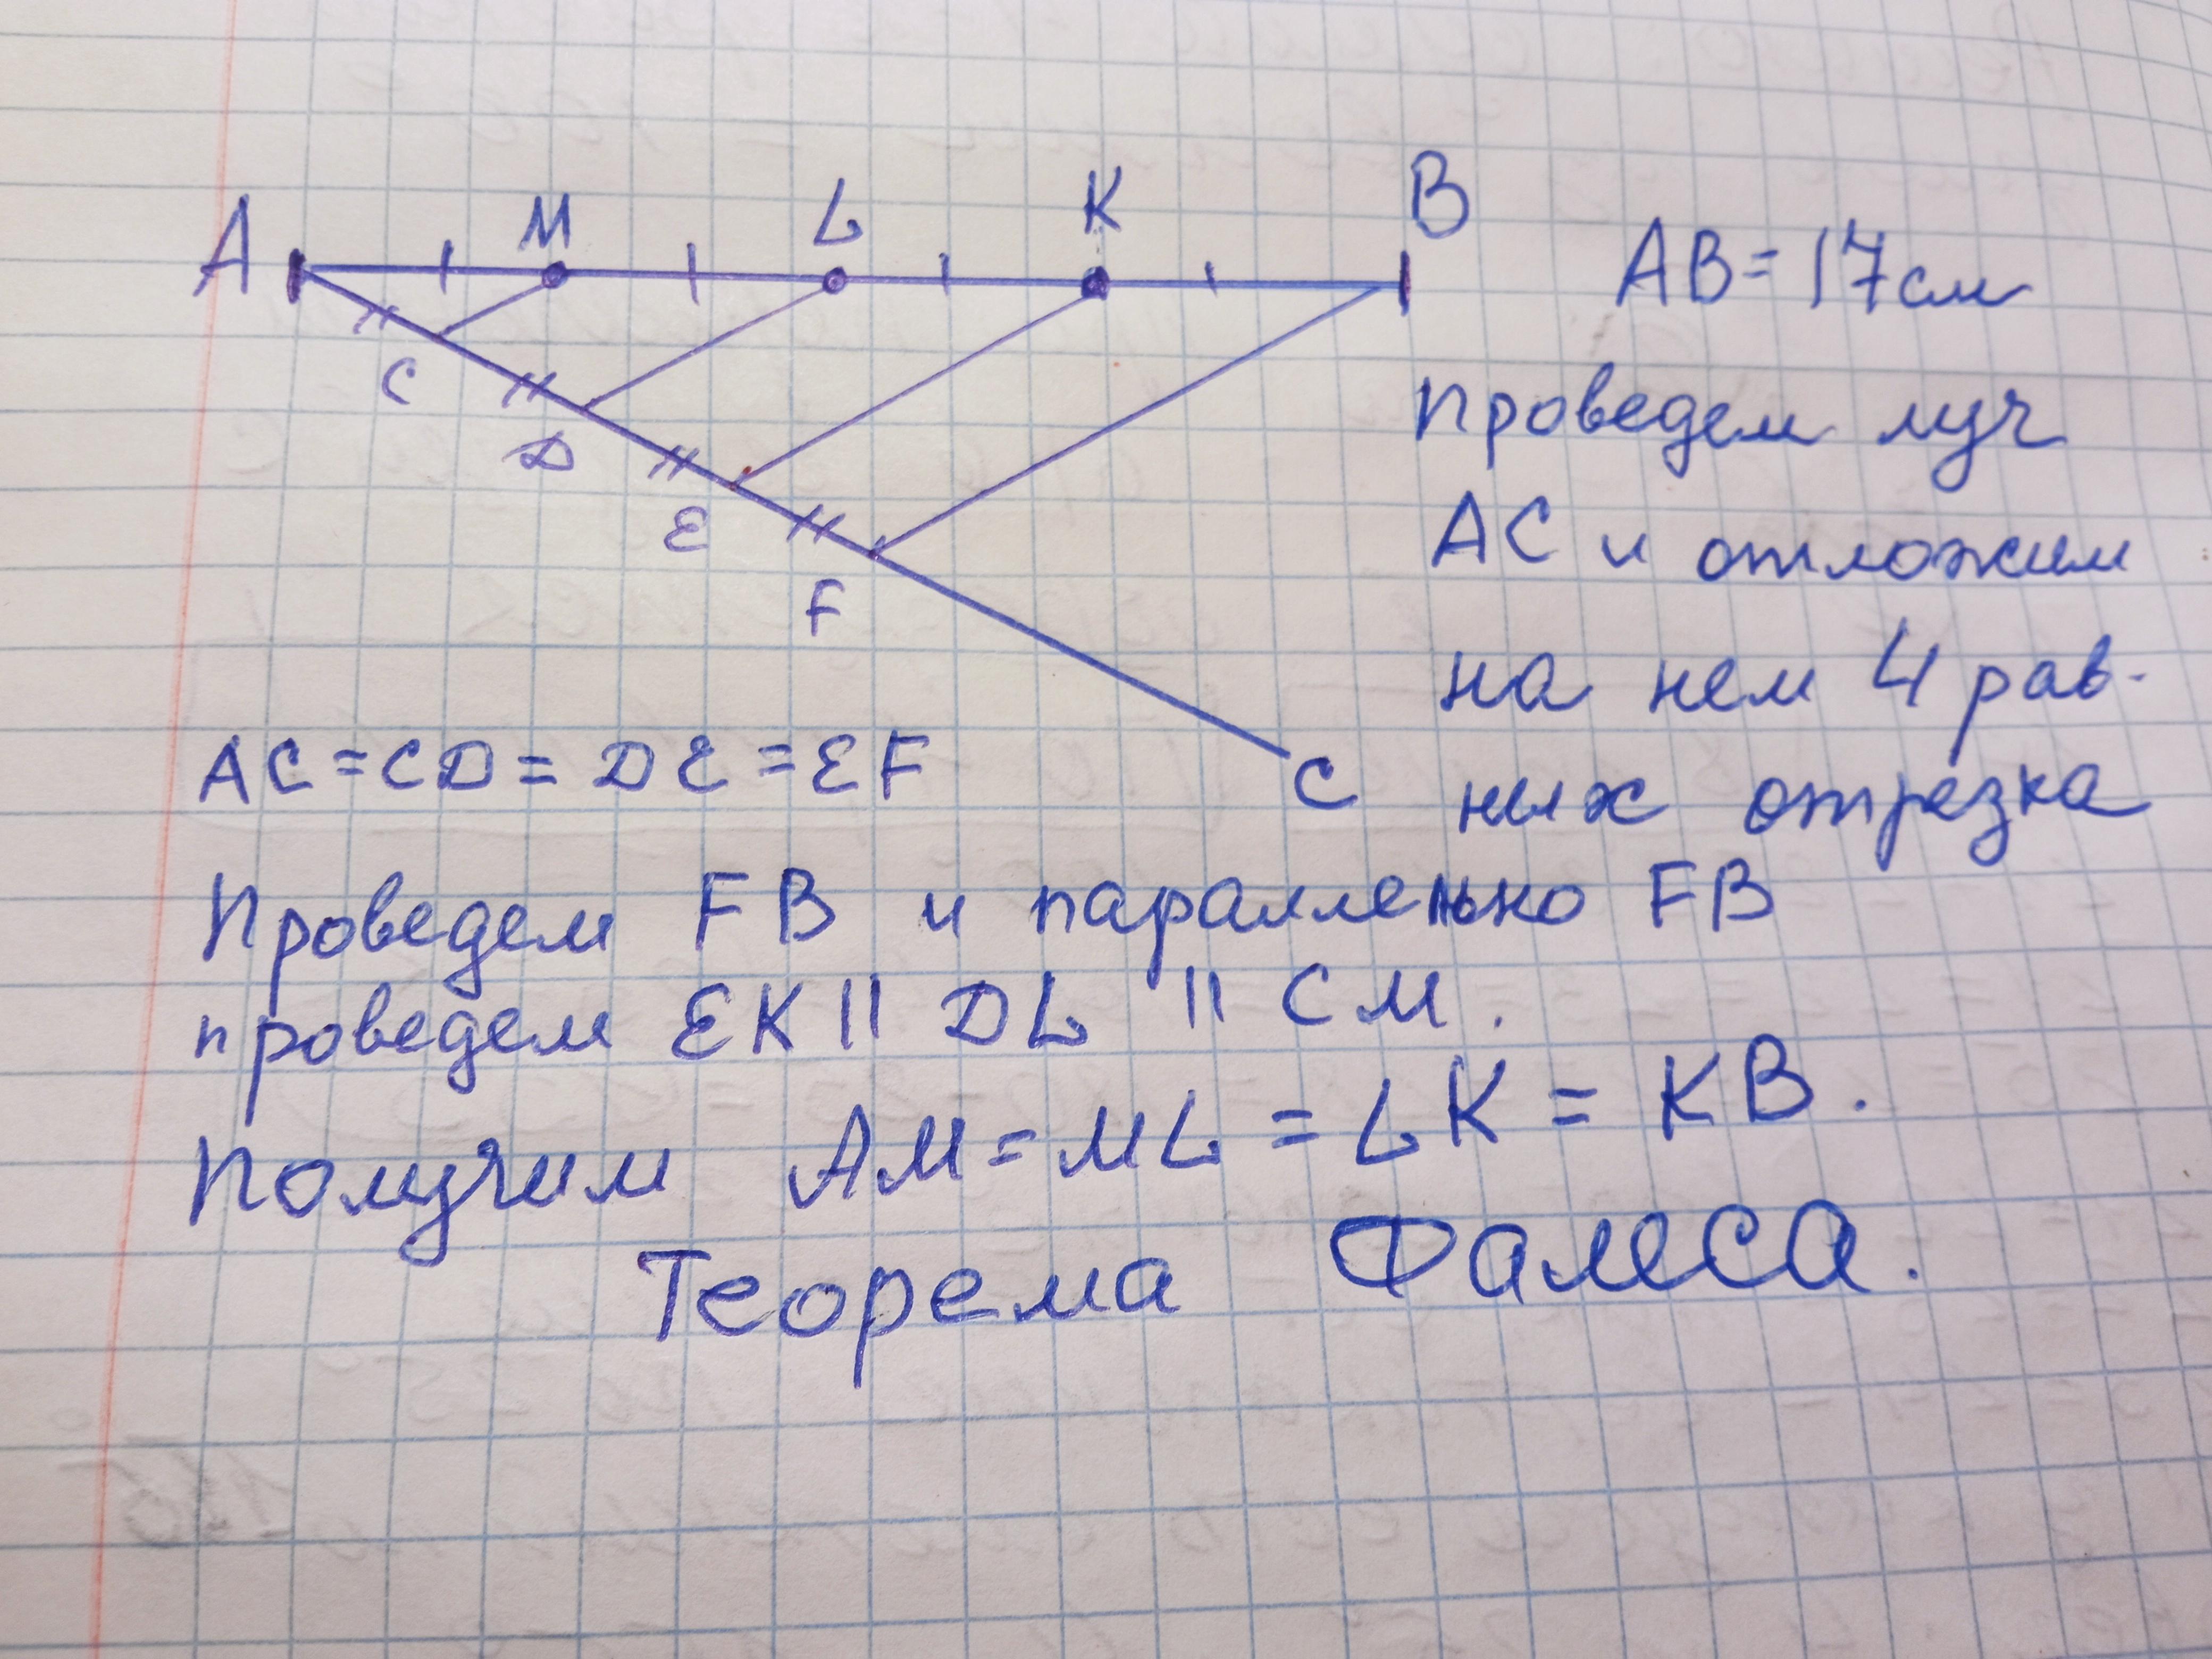 A M L K B
AB = 17 см
C
D
E
F
Проведем луч
AC и отложим
на нем 4 рав-
ных отрезка
C
AC = CD = DE = EF
Проведем FB и параллельно FB
проведем EK || DL || CM.
Получим AM = ML = LK = KB.
Теорема Фалеса.